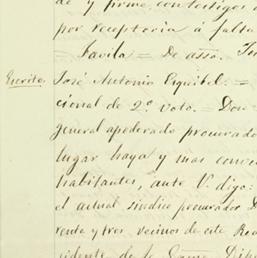 de y firmé, con testigos d
por receptoria á falta
Favila = De assa. In
Escrito. José Antonio Esquibel =
cional de 2.º voto. = Don
general apoderado procurado
lugar haya y mas conve
habitantes, ante V. digo:
el actual síndico procurador D
venta y tres vecinos de este Rea
sidente de la Exma. Dip